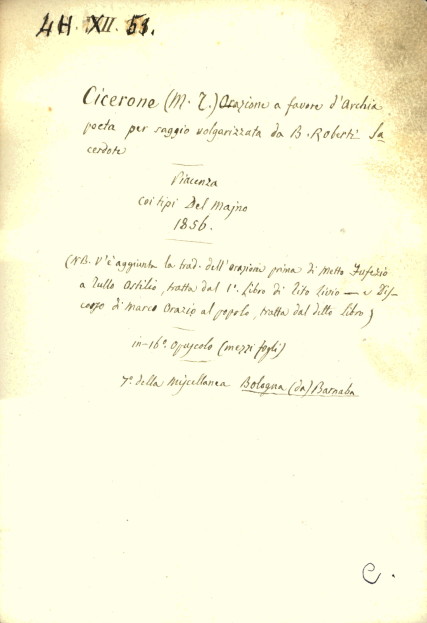 4H. XII. 51.
Cicerone (M. T.) Orazione a favore d'Archia
poeta per saggio volgarizzata da B. Roberti Sa
cerdote
Piacenza
coi tipi Del Majno
1856.
(NB. V'è aggiunta la trad. dell'orazione prima di Metto Fufezio
a Tullo Ostilio, tratta dal 1º. Libro di Tito Livio — e Dis-
corso di Marco Orazio al popolo, tratta dal detto Libro)
in-16º. Opuscolo (mezzi fogli)
7º. della Miscellanea Bologna (da) Barnaba
C.